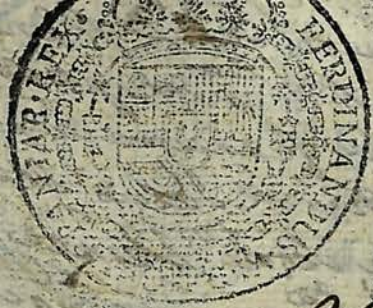 FERDINANDUS
PANIAR·REX·